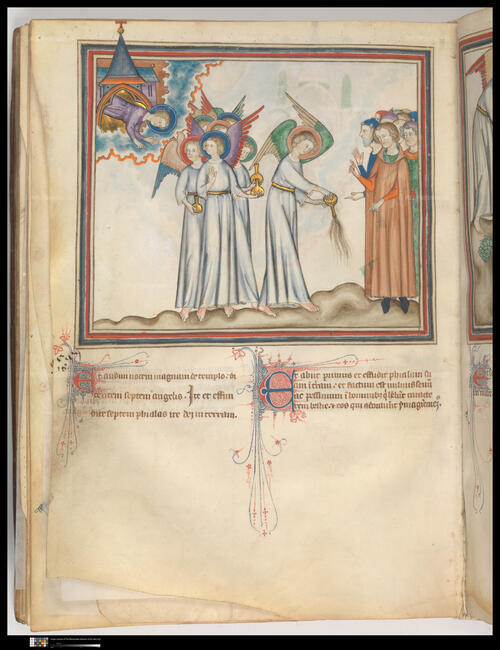 Et audivi vocem magnam de templo. di
centem septem angelis. Ite et effun
dite septem phialas ire dei in terram.
Et abiit primus et effudit phialam su
am in terram. et factum est vulnus sevum
ac pessimum in homines qui habent caracte
rem bestie. et eos qui adoraverunt ymaginem eius.